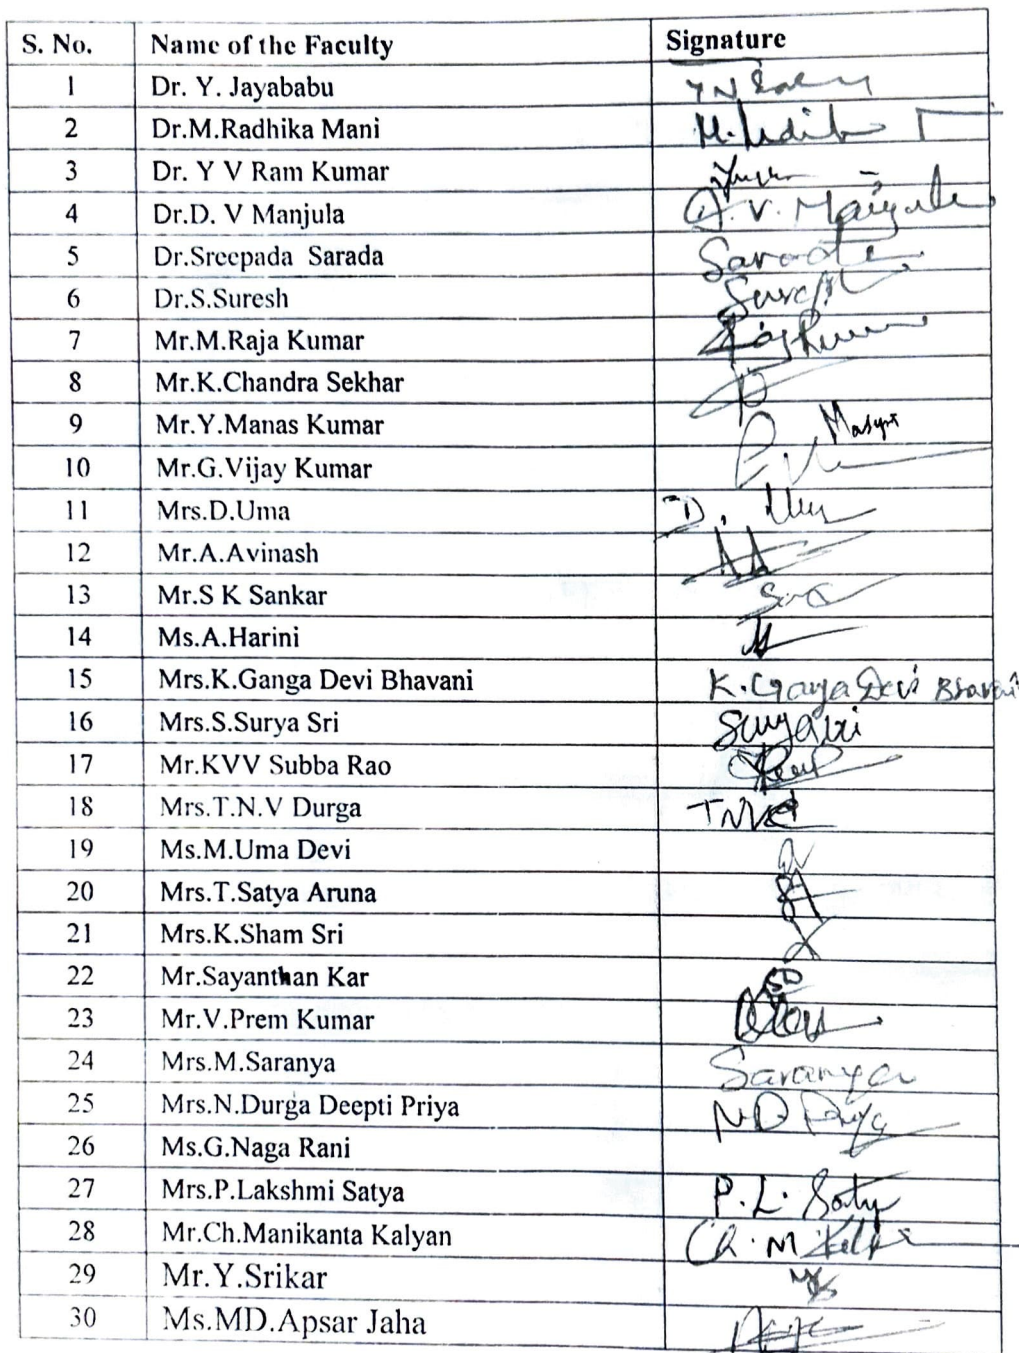 S. No. Name of the Faculty Signature
1 Dr. Y. Jayababu
2 Dr.M.Radhika Mani
3 Dr. Y V Ram Kumar
4 Dr.D. V Manjula D.V. Manjula
5 Dr.Sreepada Sarada Sarada
6 Dr.S.Suresh Suresh
7 Mr.M.Raja Kumar
8 Mr.K.Chandra Sekhar
9 Mr.Y.Manas Kumar
10 Mr.G.Vijay Kumar
11 Mrs.D.Uma D. Uma
12 Mr.A.Avinash
13 Mr.S K Sankar
14 Ms.A.Harini
15 Mrs.K.Ganga Devi Bhavani K.Ganga Devi Bhavani
16 Mrs.S.Surya Sri Suryasri
17 Mr.KVV Subba Rao
18 Mrs.T.N.V Durga
19 Ms.M.Uma Devi
20 Mrs.T.Satya Aruna
21 Mrs.K.Sham Sri
22 Mr.Sayanthan Kar
23 Mr.V.Prem Kumar
24 Mrs.M.Saranya Saranya
25 Mrs.N.Durga Deepti Priya N D Priya
26 Ms.G.Naga Rani
27 Mrs.P.Lakshmi Satya P.L. Satya
28 Mr.Ch.Manikanta Kalyan
29 Mr.Y.Srikar
30 Ms.MD.Apsar Jaha